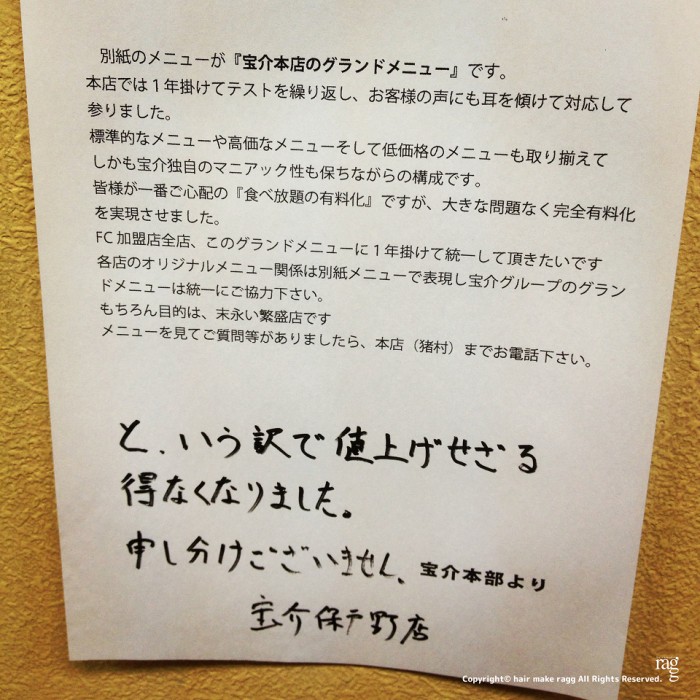 別紙のメニューが『宝介本店のグランドメニュー』です。
本店では1年掛けてテストを繰り返し、お客様の声にも耳を傾けて対応して
参りました。
標準的なメニューや高価なメニューそして低価格のメニューも取り揃えて
しかも宝介独自のマニアック性も保ちながらの構成です。
皆様が一番ご心配の『食べ放題の有料化』ですが、大きな問題なく完全有料化
を実現させました。
FC加盟店全店、このグランドメニューに1年掛けて統一して頂きたいです
各店のオリジナルメニュー関係は別紙メニューで表現し宝介グループのグラン
ドメニューは統一にご協力下さい。
もちろん目的は、末永い繁盛店です
メニューを見てご質問等がありましたら、本店（猪村）までお電話下さい。
と、いう訳で値上げせざる
得なくなりました。
申し分けございません、宝介本部より
宝介保戸野店
ragg
Copyright© hair make ragg All Rights Reserved.